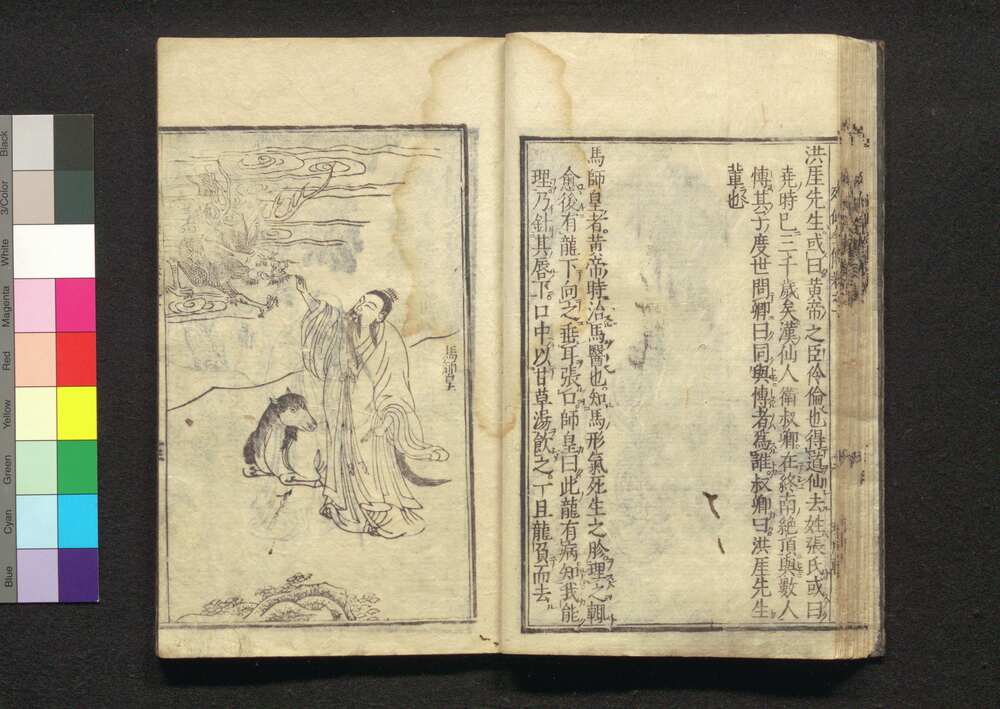 洪厓先生或曰黄帝之臣伶倫也得道仙去姓張氏或曰
堯時已三千歳矣漢仙人衛叔卿在終南絶頂與數人
博其子度世問卿曰同與博者爲誰叔卿曰洪厓先生
輩也
馬師皇者黄帝時治馬醫也知馬形氣死生之胗理之輙
愈後有龍下向之垂耳張口師皇曰此龍有病知我能
理乃針其唇下口中以甘草湯飲之一旦龍負而去
馬師皇
Blue
Cyan
Green
Yellow
Red
Magenta
White
3/Color
Black